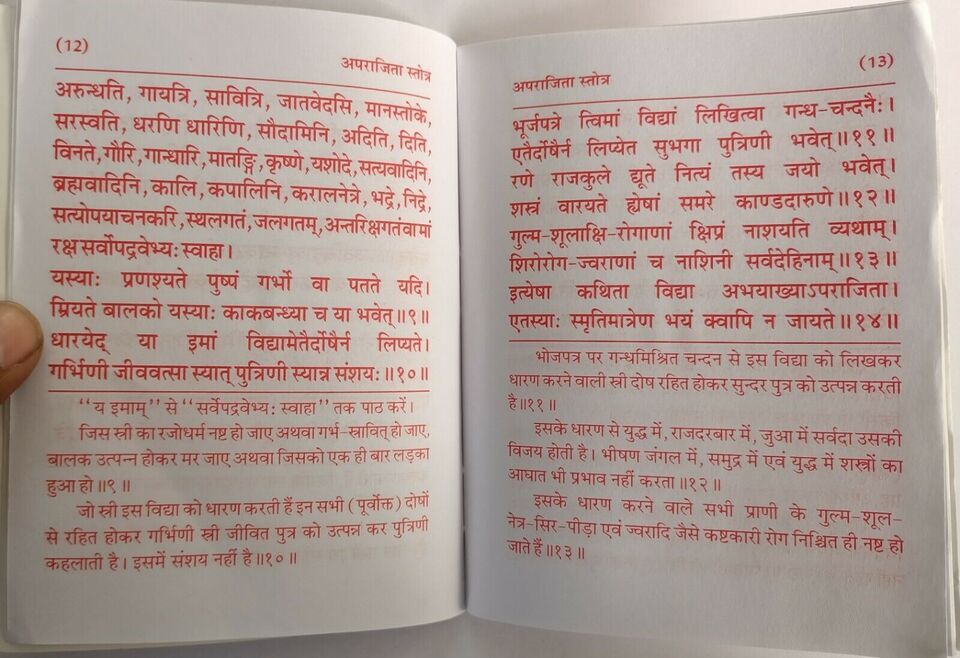 (12)
अपराजिता स्तोत्र
अरुन्धति, गायत्रि, सावित्रि, जातवेदसि, मानस्तोके,
सरस्वति, धरणि धारिणि, सौदामिनि, अदिति, दिति,
विनते, गौरि, गान्धारि, मातङ्गि, कृष्णे, यशोदे, सत्यवादिनि,
ब्रह्मवादिनि, कालि, कपालिनि, करालनेत्रे, भद्रे, निद्रे,
सत्योपयाचनकरि, स्थलगतं, जलगतम्, अन्तरिक्षगतंवा मां
रक्ष सर्वोपद्रवेभ्यः स्वाहा।
यस्याः प्रणश्यते पुष्पं गर्भो वा पतते यदि।
म्रियते बालको यस्याः काकबन्ध्या च या भवेत्॥९॥
धारयेद् या इमां विद्यामेतैर्दोषैर्न लिप्यते।
गर्भिणी जीववत्सा स्यात् पुत्रिणी स्यान्न संशयः॥१०॥
‘‘य इमाम्’’ से ‘‘सर्वेपद्रवेभ्यः स्वाहा’’ तक पाठ करें।
जिस स्त्री का रजोधर्म नष्ट हो जाए अथवा गर्भ-स्रावित् हो जाए,
बालक उत्पन्न होकर मर जाए अथवा जिसको एक ही बार लड़का
हुआ हो॥९॥
जो स्त्री इस विद्या को धारण करती हैं इन सभी (पूर्वोक्त) दोषों
से रहित होकर गर्भिणी स्त्री जीवित पुत्र को उत्पन्न कर पुत्रिणी
कहलाती है। इसमें संशय नहीं है॥१०॥
(13)
अपराजिता स्तोत्र
भूर्जपत्रे त्विमां विद्यां लिखित्वा गन्ध-चन्दनैः।
एतैर्दोषैर्न लिप्येत सुभगा पुत्रिणी भवेत्॥११॥
रणे राजकुले द्यूते नित्यं तस्य जयो भवेत्।
शस्त्रं वारयते ह्येषां समरे काण्डदारुणे॥१२॥
गुल्म-शूलाक्षि-रोगाणां क्षिप्रं नाशयति व्यथाम्।
शिरोरोग-ज्वराणां च नाशिनी सर्वदेहिनाम्॥१३॥
इत्येषा कथिता विद्या अभयाख्याऽपराजिता।
एतस्याः स्मृतिमात्रेण भयं क्वापि न जायते॥१४॥
भोजपत्र पर गन्धमिश्रित चन्दन से इस विद्या को लिखकर
धारण करने वाली स्त्री दोष रहित होकर सुन्दर पुत्र को उत्पन्न करती
है॥११॥
इसके धारण से युद्ध में, राजदरबार में, जुआ में सर्वदा उसकी
विजय होती है। भीषण जंगल में, समुद्र में एवं युद्ध में शस्त्रों का
आघात भी प्रभाव नहीं करता॥१२॥
इसके धारण करने वाले सभी प्राणी के गुल्म-शूल-
नेत्र-सिर-पीड़ा एवं ज्वरादि जैसे कष्टकारी रोग निश्चित ही नष्ट हो
जाते हैं॥१३॥